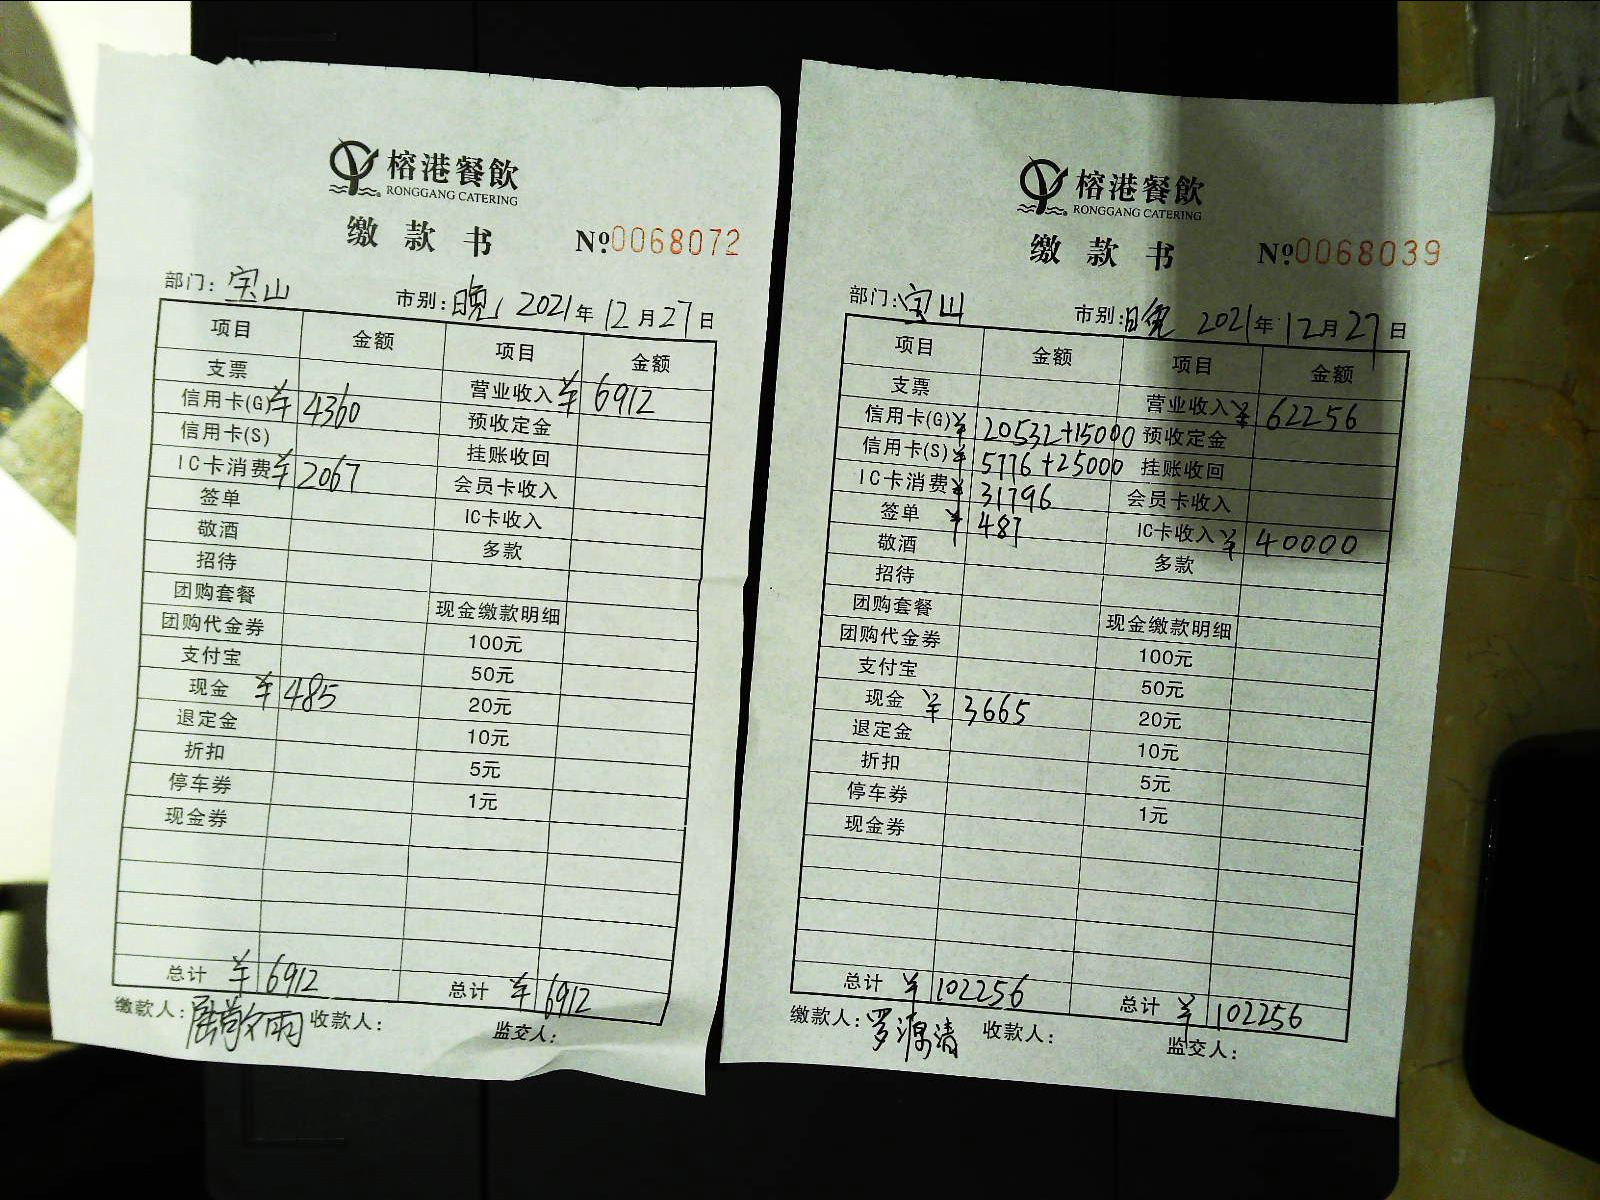 榕港餐飲
RONGGANG CATERING
缴款书 №0068072
部门：宝山 市别：晚 2021年12月27日
项目 金额 项目 金额
支票 营业收入 ¥6912
信用卡(G) ¥4360 预收定金
信用卡(S) 挂账收回
IC卡消费 ¥2067 会员卡收入
签单 IC卡收入
敬酒 多款
招待
团购套餐 现金缴款明细
团购代金券 100元
支付宝 50元
现金 ¥485 20元
退定金 10元
折扣 5元
停车券 1元
现金券
总计 ¥6912 总计 ¥6912
缴款人： 收款人： 监交人：
榕港餐飲
RONGGANG CATERING
缴款书 №0068039
部门：宝山 市别：晚 2021年12月27日
项目 金额 项目 金额
支票 营业收入 ¥62256
信用卡(G) ¥20532+15000 预收定金
信用卡(S) ¥5776+25000 挂账收回
IC卡消费 ¥31796 会员卡收入
签单 ¥487 IC卡收入 ¥40000
敬酒 多款
招待
团购套餐 现金缴款明细
团购代金券 100元
支付宝 50元
现金 ¥3665 20元
退定金 10元
折扣 5元
停车券 1元
现金券
总计 ¥102256 总计 ¥102256
缴款人：罗源清 收款人： 监交人：